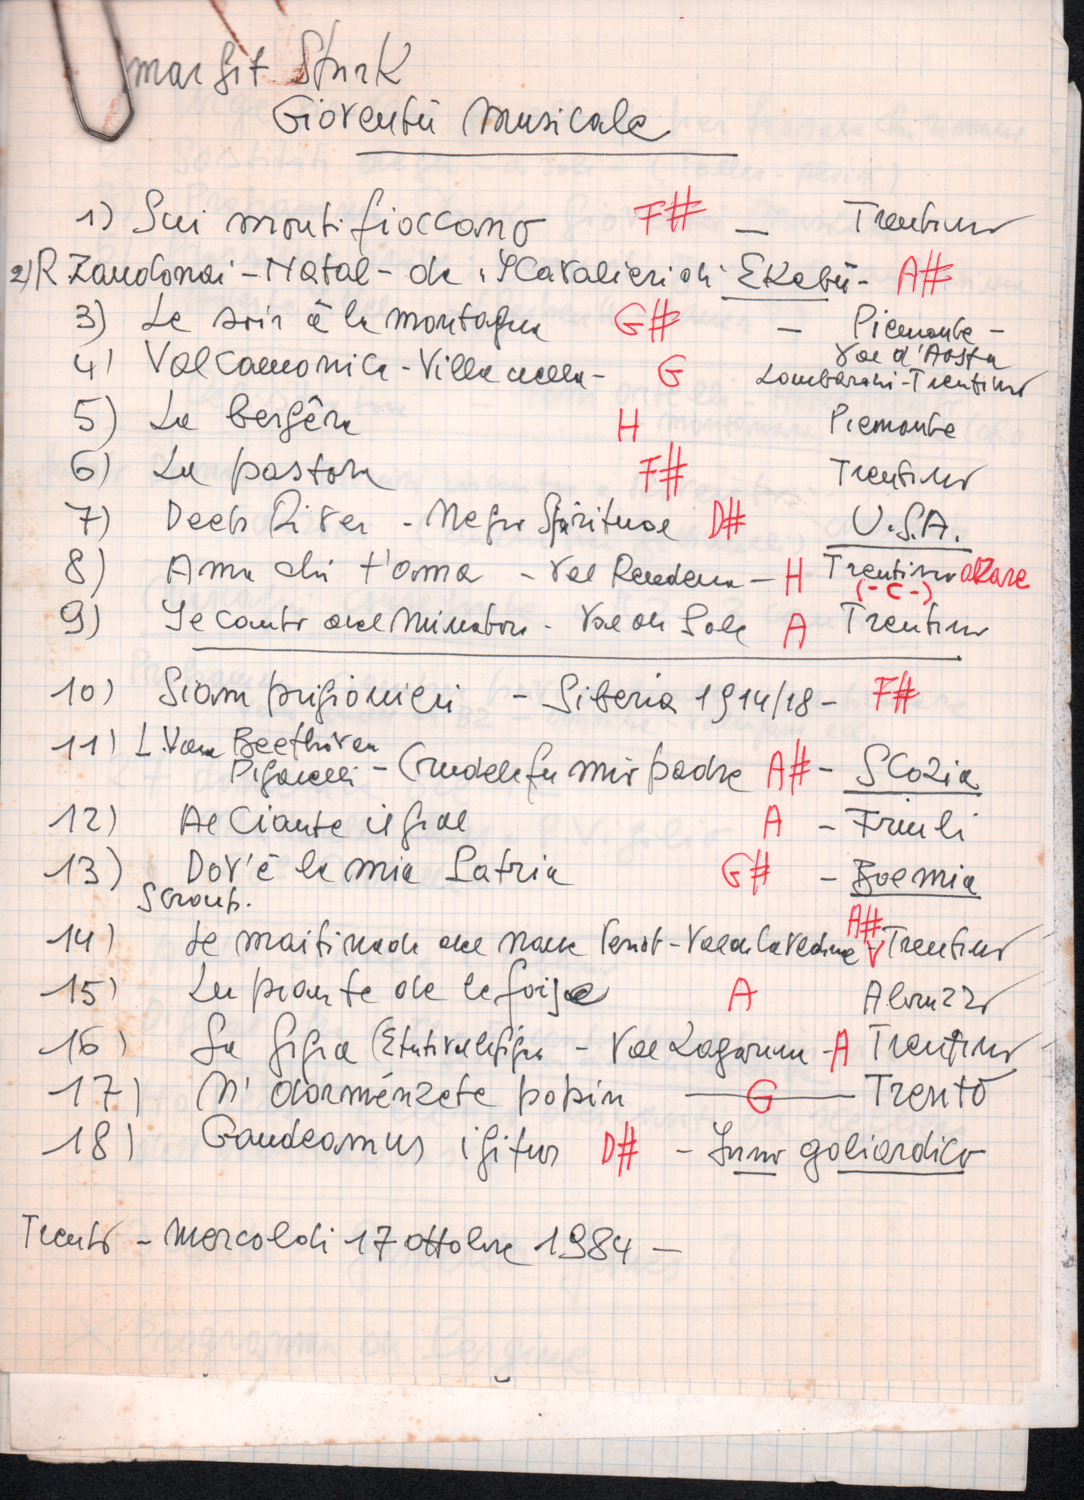 Margit Sturk
Gioventù Musicale
1) Sui monti fioccano F# — Trentino
2) R Zandonai - Natal - da "I Cavalieri di Ekebù - A#
3) Le soir à la montagna G# — Piemonte -
Val d'Aosta
4) Valcamonica - Villanella - G Lombardia - Trentino
5) La bergêra H Piemonte
6) La pastora F# Trentino
7) Deep River - Negro Spirituae D# U.S.A.
8) Ama chi t'ama - Val Rendena - H Trentino alzare
(- C -)
9) Le cante del Minatore - Val di Sole A Trentino
10) Siam prigionieri - Siberia 1914/18 - F#
11) L. Van Beethoven
Pigarelli - Crudele fu mio padre A# - Scozia
12) Al Ciante il gial A - Friuli
13) Dov'è la mia Patria G# - Boemia
Scroub.
A#
14) La maitinada del nane Val di Trentino
15) La piante de le foije A Abruzzo
16) La Gigia Val Lagarina - A Trentino
17) N' dorménzete popin — G — Trento
18) Gaudeamus igitur D# - Inno goliardico
Trento - Mercoledi 17 ottobre 1984 -